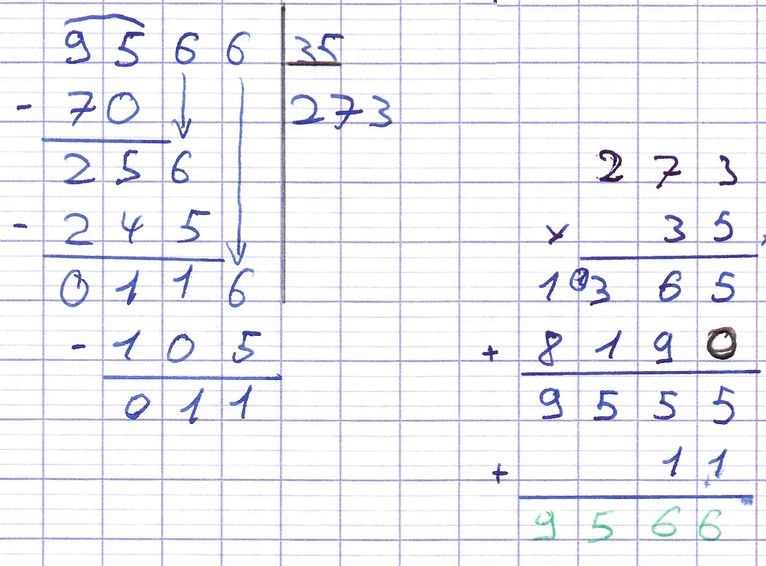 9566 35
- 70 273
256
- 245
0116
- 105
011
273
x 35
1365
+ 8190
9555
+ 11
9566